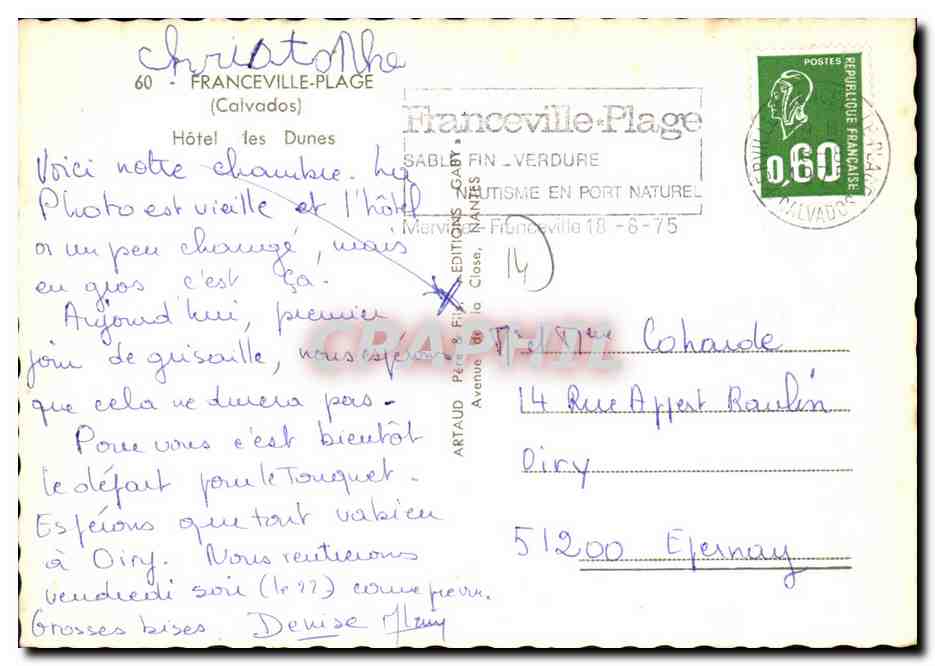 Christophe
60 - FRANCEVILLE-PLAGE
(Calvados)
Hôtel des Dunes
Voici notre chambre. La
Photo est vieille et l'hôtel
a un peu changé, mais
en gros c'est ça.
Aujourd'hui, premier
jour de grisaille, nous espérons
que cela ne durera pas.
Pour vous c'est bientôt
le départ pour le Touquet.
Espérons que tout va bien
à Oiry. Nous rentrerons
vendredi soir (le 22) comme prévu.
Grosses bises. Denise
ARTAUD Père & Fils, EDITIONS "GABY"
Avenue de la Close, NANTES
Franceville-Plage
SABLE FIN - VERDURE
NAUTISME EN PORT NATUREL
Merville-Franceville 18-8-75
14
POSTES
REPUBLIQUE FRANÇAISE
0,60
CALVADOS
CRAPHIL
Mr et Mme Coharde
14 Rue Appert Raulin
Oiry
51200 Epernay